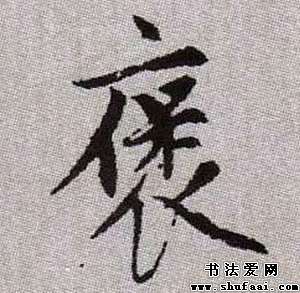 褒
书法爱网
www.shufaai.com